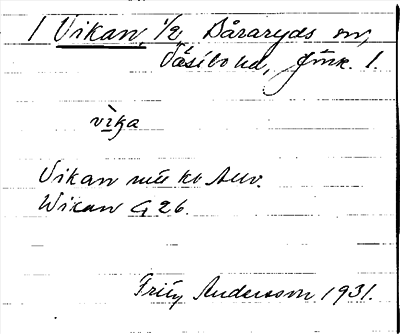 1 Vikan, 1/2 Båraryds sn,
Västbo hd, Jönk. l.
vi̇̀ka
Vikan
Wikan G 26.
Fritz Andersson 1931.